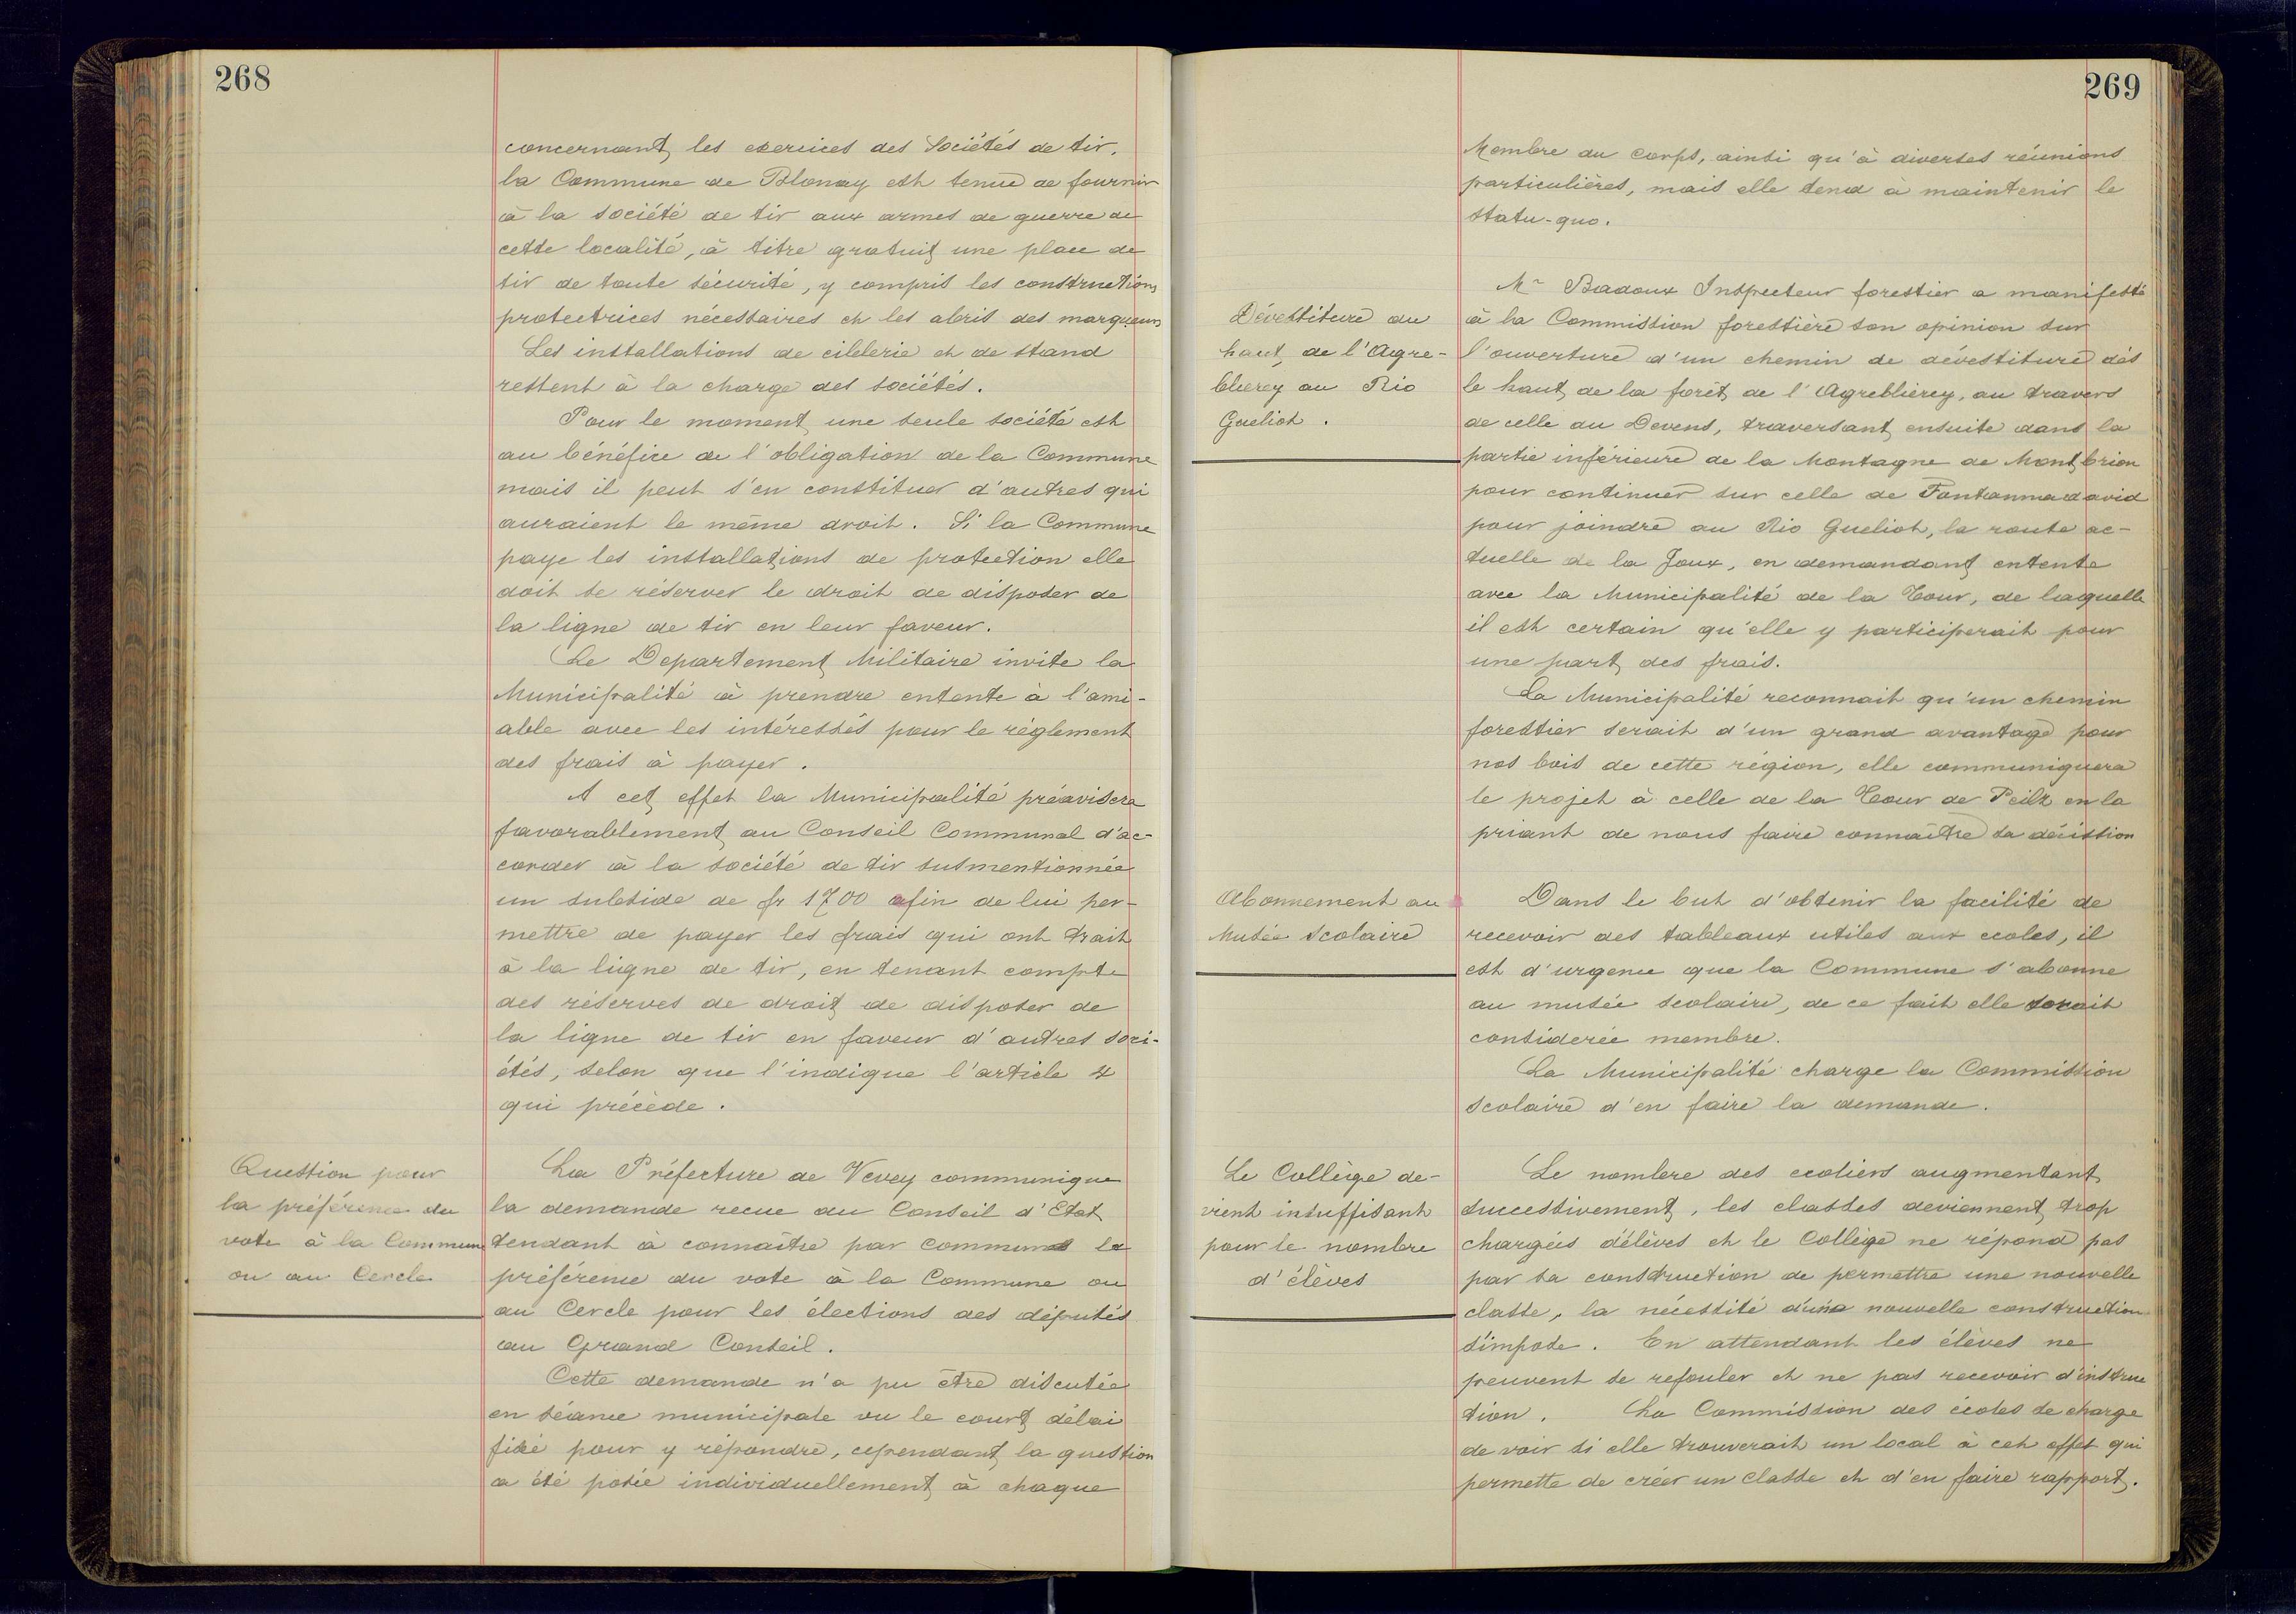 268
concernant les exercices des Sociétés de tir.
la Commune de Blonay est tenue de fournir
à la société de tir aux armes de guerre de
cette localité, à titre gratuit une place de
tir de toute sécurité, y compris les constructions
protectrices nécessaires et les abris des marqueurs
Les installations de ciblerie et de stand
restent à la charge des sociétés.
Pour le moment une seule société est
au bénéfice de l'obligation de la Commune
mais il peut s'en constituer d'autres qui
auraient le même droit. Si la Commune
paye les installations de protection elle
doit se réserver le droit de disposer de
la ligne de tir en leur faveur.
Le Departement Militaire invite la
Municipalité à prendre entente à l'ami-
able avec les intéressés pour le règlement
des frais à payer.
A cet effet la Municipalité préavisera
favorablement au Conseil Communal d'ac-
corder à la société de tir susmentionnée
un subside de fr 1700 afin de lui per-
mettre de payer les frais qui ont trait
à la ligne de tir, en tenant compte
des réserves de droit de disposer de
la ligne de tir en faveur d'autres soci-
étés, selon que l'indique l'article 4
qui précède.
Question pour
la préférence du
vote à la Commune
ou au Cercle
La Préfecture de Vevey communique
la demande recue du Conseil d'Etat
tendant à connaître par communes la
préférence du vote à la Commune ou
au Cercle pour les élections des députés
au Grand Conseil.
Cette demande n'a pu être discutée
en séance municipale vu le court délai
fixé pour y répondre, cependant la question
a été posée individuellement à chaque
269
Membre du corps, ainsi qu'à diverses réunions
particulières, mais elle tend à maintenir le
statu-quo.
Dévestiture du
haut de l'Agre-
blierey au Rio
Gueliot.
Mr Badoux Inspecteur forestier a manifesté
à la Commission forestière son opinion sur
l'ouverture d'un chemin de dévestiture dès
le haut de la forêt de l'Agreblierey, au travers
de celle du Devens, traversant ensuite dans la
partie inférieure de la Montagne de Montbrion
pour continuer sur celle de Fontanmadavid
pour joindre au Rio Gueliot, la route ac-
tuelle de la Joux, en demandant entente
avec la Municipalité de la Tour, de laquelle
il est certain qu'elle y participerait pour
une part des frais.
La Municipalité reconnait qu'un chemin
forestier serait d'un grand avantage pour
nos bois de cette région, elle communiquera
le projet à celle de la Tour de Peilz en la
priant de nous faire connaître sa décission
Abonnement au
Musée scolaire
Dans le but d'obtenir la facilité de
recevoir des tableaux utiles aux ecoles, il
est d'urgence que la Commune s'abonne
au musée scolaire, de ce fait elle serait
considerée membre.
La Municipalité charge la Commission
scolaire d'en faire la demande.
Le Collège de-
vient insuffisant
pour le nombre
d'élèves
Le nombre des ecoliers augmentant
successivement, les classes deviennent trop
chargées d'élèves et le Collège ne répond pas
par sa construction de permettre une nouvelle
classe, la nécessité d'une nouvelle construction
s'impose. En attendant les élèves ne
peuvent se refouler et ne pas recevoir d'instruc
tion. La Commission des écoles se charge
de voir si elle trouverait un local à cet effet qui
permette de créer un classe et d'en faire rapport.